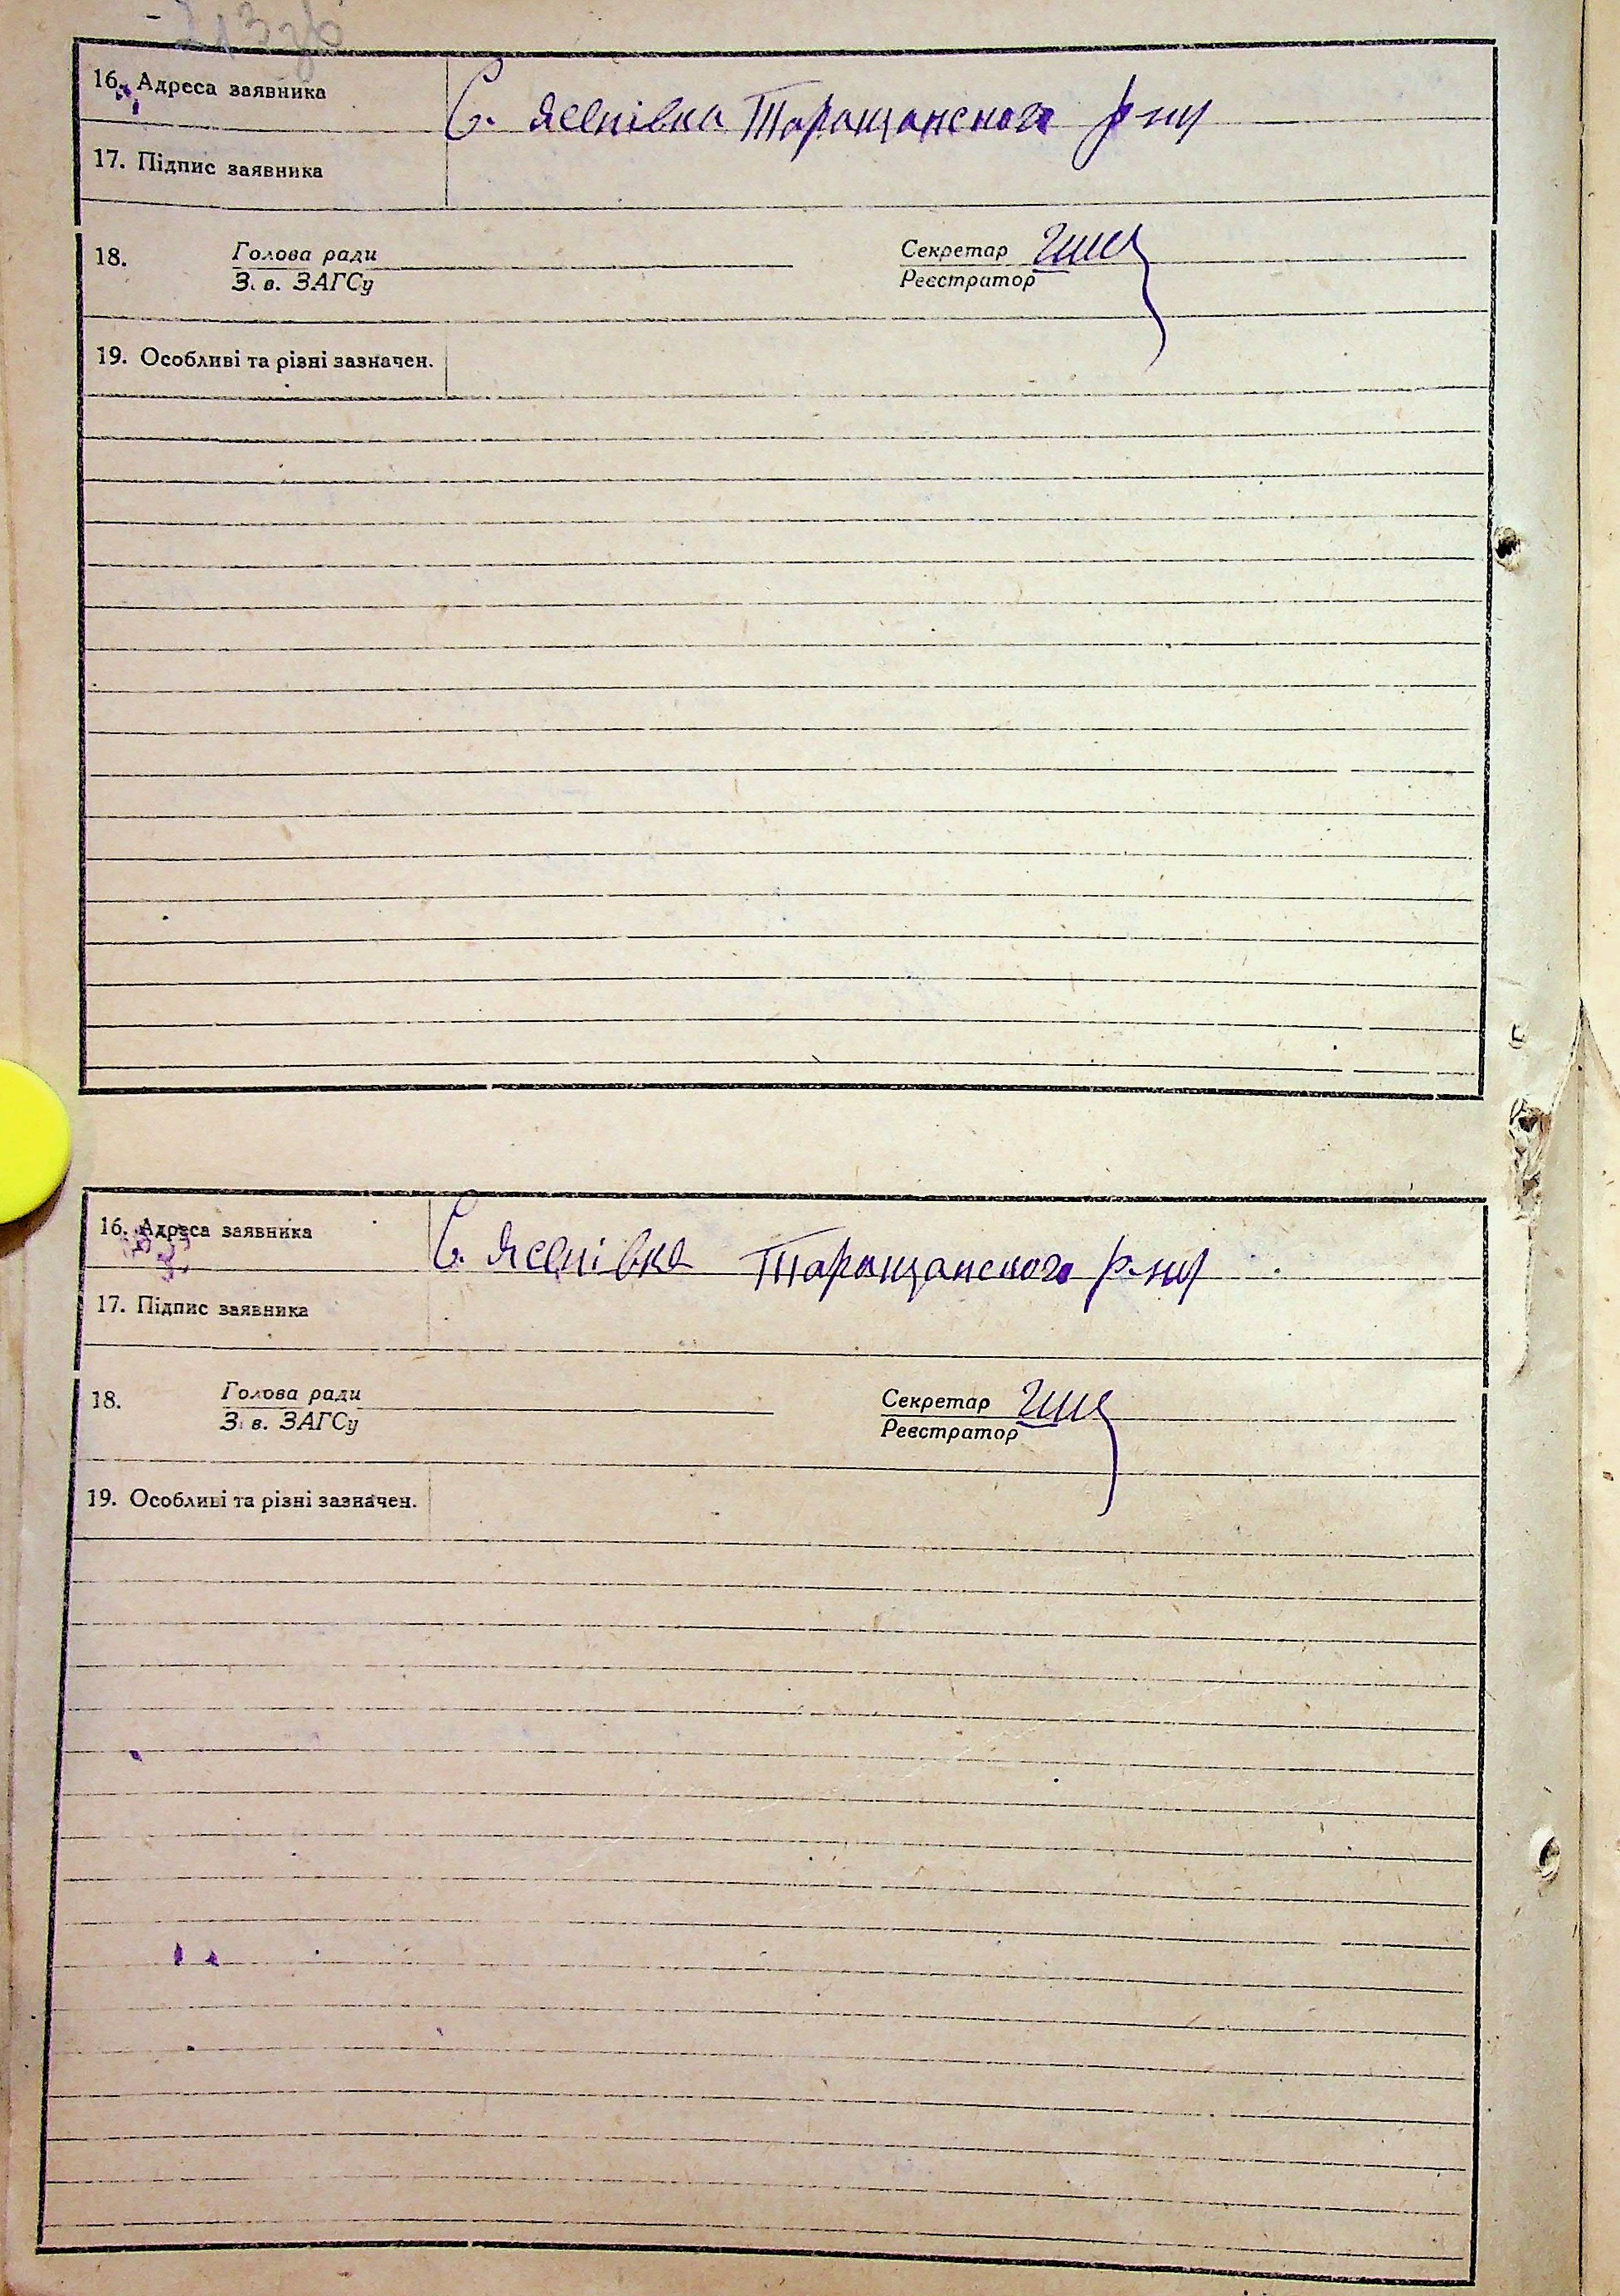 213зв
16. Адреса заявника С. Ясенівка Таращанского р-ну
17. Підпис заявника
18. Голова ради Секретар
З. в. ЗАГСу Реєстратор
19. Особливі та різні зазначен.
16. Адреса заявника С. Ясенівка Таращанского р-ну
17. Підпис заявника
18. Голова ради Секретар
З. в. ЗАГСу Реєстратор
19. Особливі та різні зазначен.